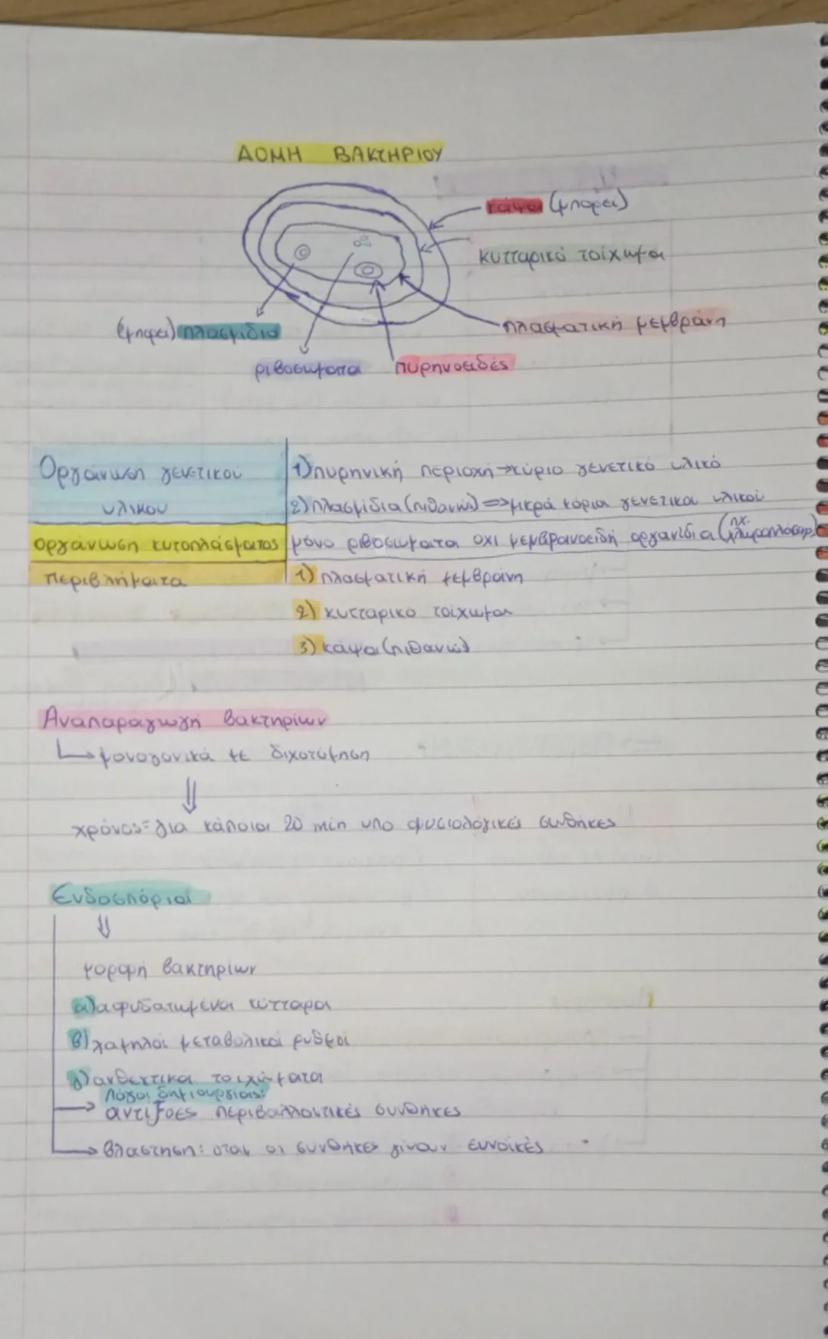 ΔΟΜΗ ΒΑΚΤΗΡΙΟΥ
κάψα (μπορεί)
κυτταρικό τοίχωμα
πλασματική μεμβράνη
(μπορεί) πλασμίδια
ριβοσωματα
πυρηνοειδές
Οργάνωση γενετικού
υλικου
1) πυρηνική περιοχή → κύριο γενετικό υλικό
2) πλασμίδια (πιθανώς) => μικρά κόρια γενετικου υλικού
οργάνωση κυτοπλάσματος
μόνο ριβοσωματα οχι μεμβρανοειδή οργανίδια (πχ.
περιβλήματα
1) πλασματική μεμβράνη
2) κυτταρικο τοίχωμα
3) κάψα (πιθανώς)
Αναπαραγωγή βακτηρίων
μονογονικά με διχοτόμηση
χρόνος = για κάποια 20 min υπο φυσιολογικές συνθήκες
Ενδοσπόρια
μορφή βακτηρίων
α) αφυδατωμένα κύτταρα
β) χαμηλοί μεταβολικοί ρυθμοί
γ) ανθεκτικα τοιχώματα
Λόγοι δημιουργίας:
→ αντίξοες περιβαλλοντικές συνθήκες
→ βλαστηση: οταν οι συνθήκες γίνουν ευνοϊκές